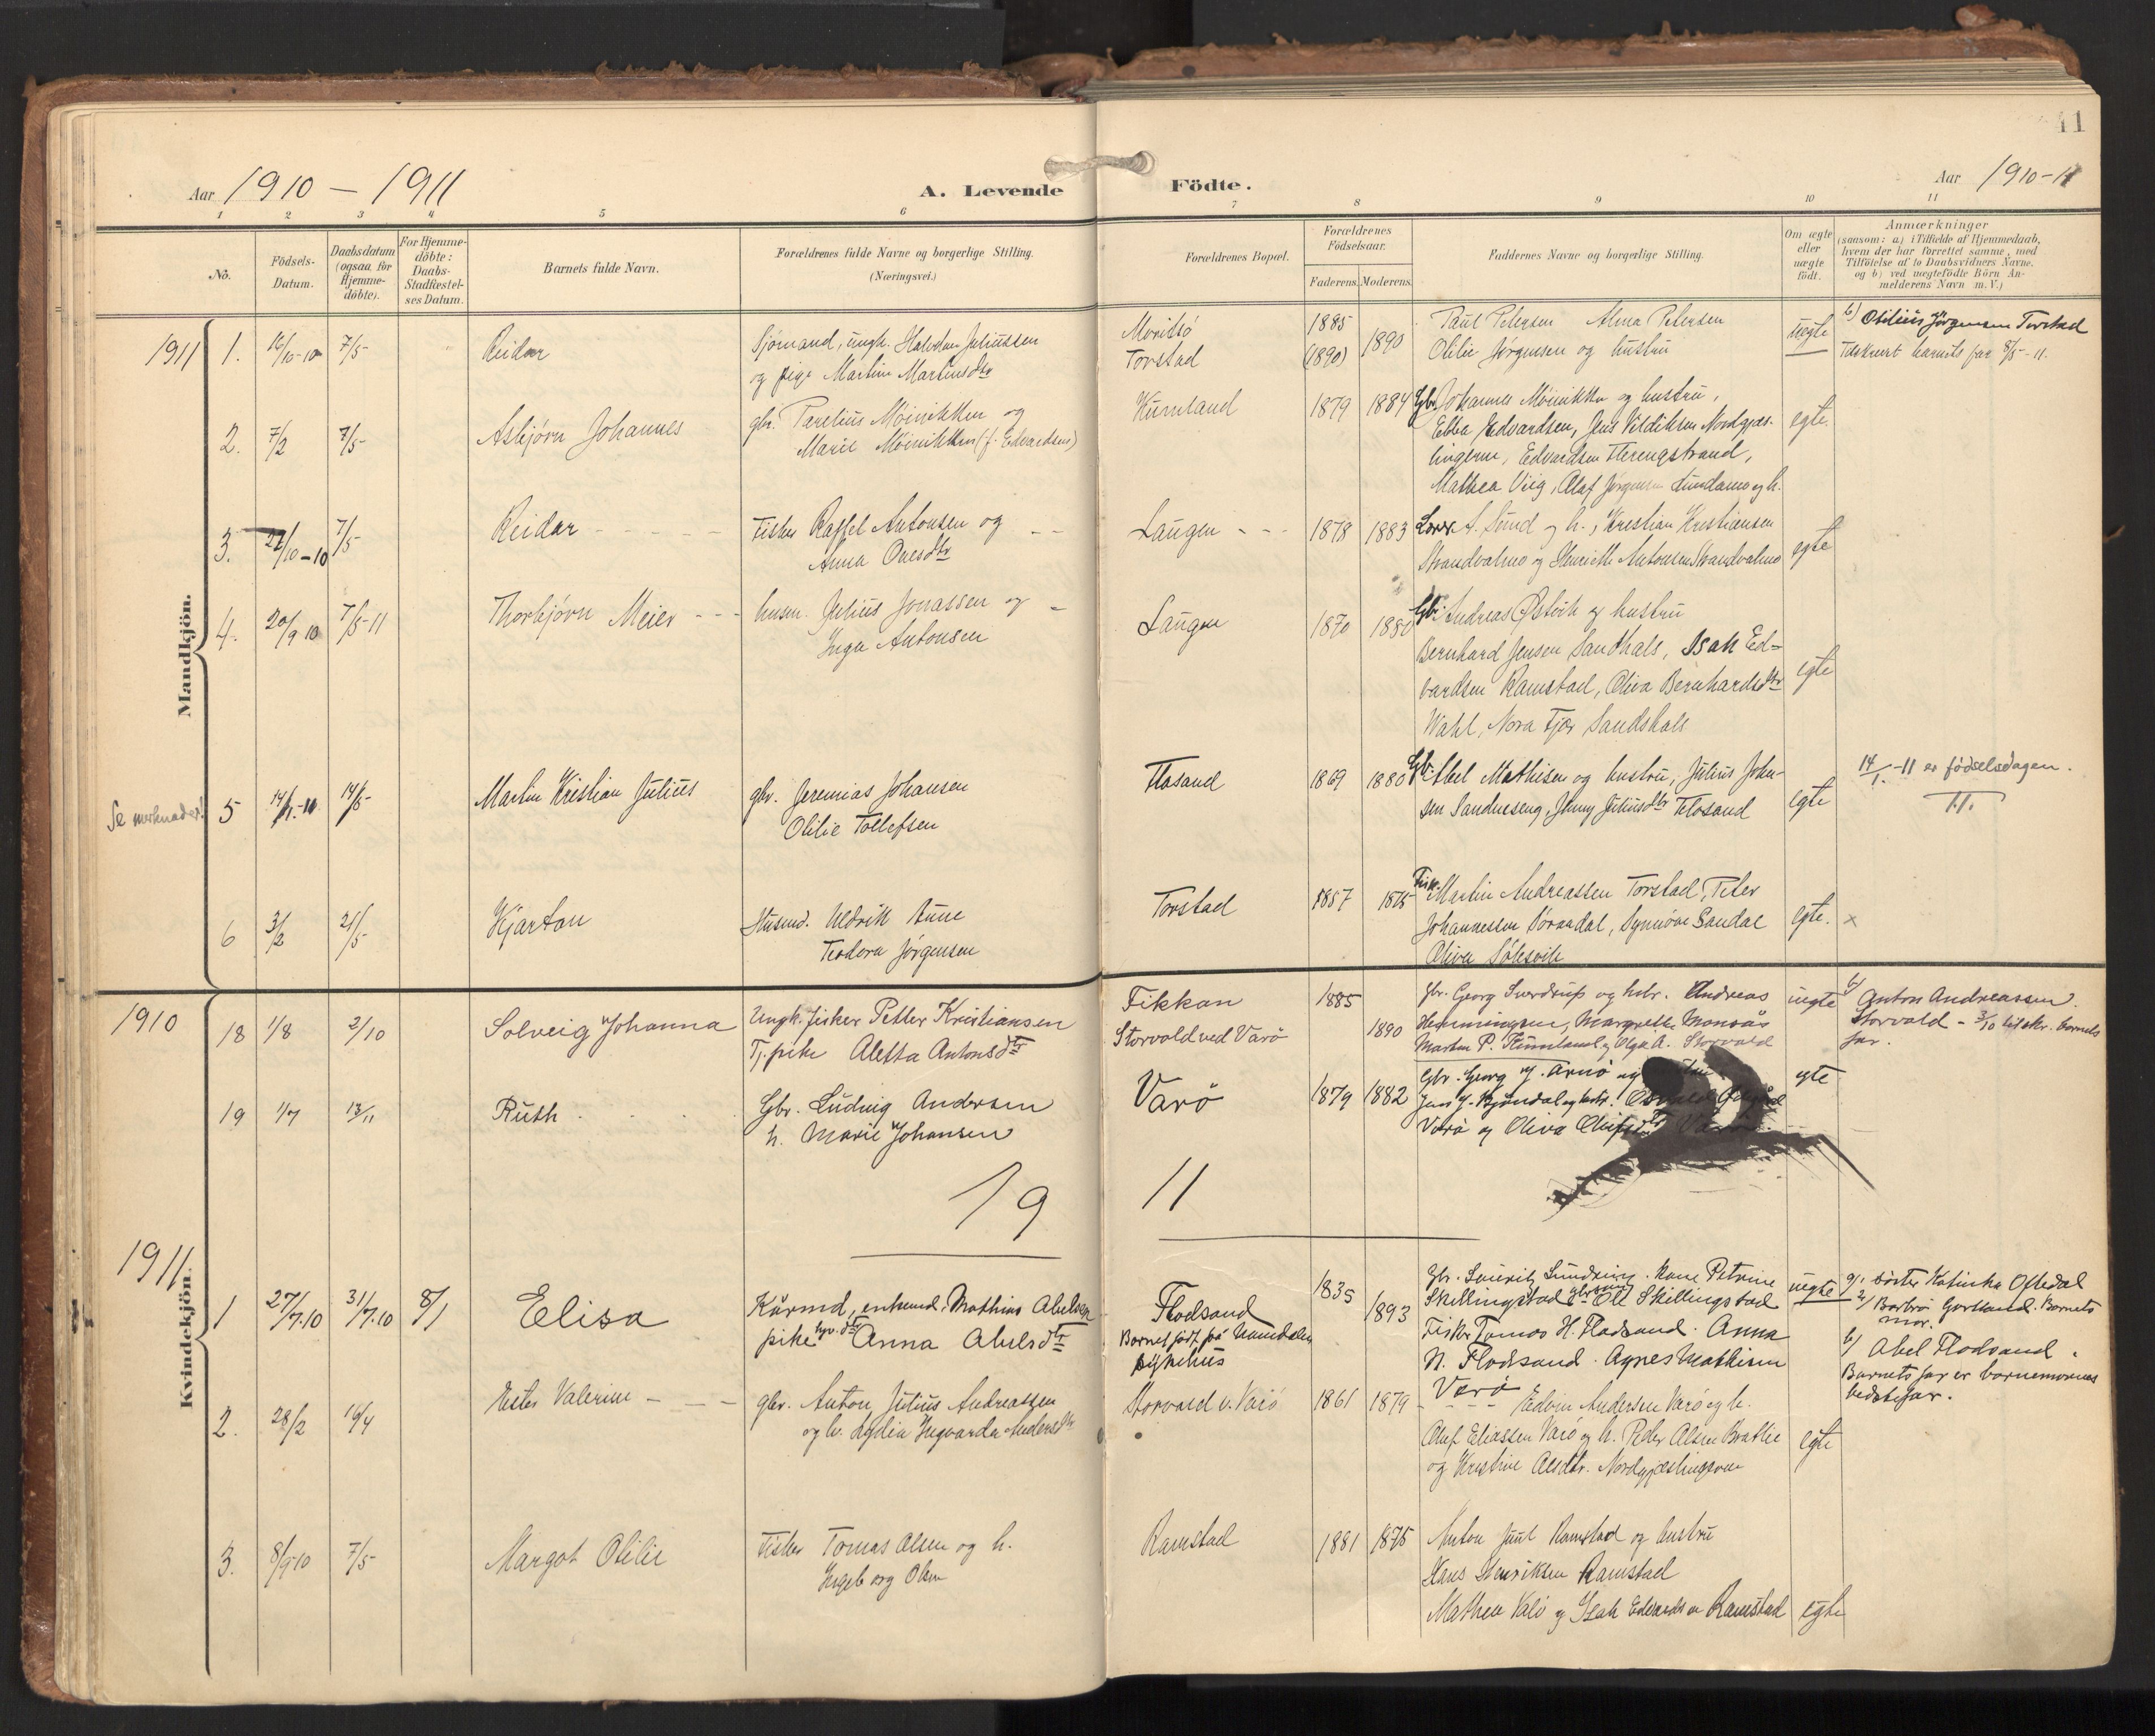 41
Aar 1910 – 1911
A. Levende Födte.
Aar 1910-11
1 2 3 4 5 6 7 8 9 10 11
No.
Födsels-
Datum.
Daabsdatum
(ogsaa for
Hjemme-
döbte).
For Hjemme-
döbte:
Daabs-
Stadfæstel-
ses Datum.
Barnets fulde Navn.
Forældrenes fulde Navne og borgerlige Stilling.
(Næringsvei.)
Forældrenes Bopæl.
Forældrenes
Födselsaar.
Faderens. Moderens.
Faddernes Navne og borgerlige Stilling.
Om ægte
eller
uægte
födt.
Anmærkninger
(saasom: a) i Tilfælde af Hjemmedaab,
hvem der har forrettet samme, med
Tilföielse af to Daabsvidners Navne.
og b) ved uægtefödte Börn An-
melderens Navn m. V.)
Mandkjön.
1911 1. 16/10-10 7/5- Reidar
Sjömand, ungk. Halvdan Juliussen
og pige Martin Martinsdtr
Torstad
1885 (1890) 1890
Paul Petersen Alma Petersen
Otilie Jørgensen og hustru
uegte
b) Otilius Jørgensen Torstad
Tilskrevet barnets far 8/5-11.
2. 7/2 7/5- Asbjørn Johannes
gbr. Parelius Möinikken og
Marie Möinikken (f. Edvardsen)
Kumland
1879 1884
Gbr. Johannes Möinikken og hustru,
Ebba Edvardsen, Jens Nordgjæs-
lingerne, Edvardsen
Mathea Viig, Olaf Jørgensen og h.
egte.
3. 22/10-10 7/5- Reidar
Fisker Antonsen og
Anna
Laugen
1878 1883
Sund og h., Kristian Kristiansen
Strandvalmo og Henriette Antonsen Strandvalmo
egte
4. 20/9 10 7/5-11 Thorbjørn Meier
husm. Julius Jonassen og
Inga Antonsen
Laugen
1870 1880
Gbr. Andreas Østvik og hustru
Bernhard Jensen Sandhals, Isak Ed-
vardsen Ramstad, Oliva Bernhardsdtr
Wahl, Nora Fjær Sandshals
egte
Se merknader! 5 14/1.-11 14/5- Martin Kristian Julius
gbr. Jeremias Johansen
Otilie Tollefsen
Flosand
1869 1880
Gbr. Abel Mathisen og hustru, Julius Johan-
sen Sandneseng, Jenny Juliusdtr Flosand
egte
14/1.-11 er födselsdagen.
6 3/2 21/5- Kjartan
Husmd. Uldrik Aune
Teodora Jørgensen
Torstad
1857 1875
Fisk. Martin Andreassen Torstad, Peter
Johannessen Sörendal, Synnöve Sandal
Oliva Sølesvik
egte. x
Kvindekjön.
1910 18 1/8 2/10 Solveig Johanna
Ungk. fisker Petter Kristiansen
Tj.pike Aletta Antonsdtr
Fikkan
Storvold ved Varö
1885 1890
Gbr. Georg Sverdrup og hstr. Andreas
Henningsen, Margrethe Monsås
Marten P. Kumland og Olga A. Storvold
uegte
b) Anton Andreassen.
Storvold – 3/10 tilskr. barnets
far.
19 1/7 13/11 Ruth
Gbr. Ludvig Andersen
h. Marie Johansen
Varö
1879 1882
Gbr. Georg J. Arnö og
Varö og Oliva
egte
19 11
1911 1 27/7.10 31/7.10 8/1 Elisa
Kårmd, enkemd. Mathias Abelsen
pike Anna Abelsdtr
Flodsand
Barnet født på Namdalens
sykehus
1835 1893
Gbr. Lauritz Sundring. Kone Petrine
Skillingstad Ole Skillingstad
Fisker Tomas H. Flodsand. Anna
N. Flodsand. Agnes Mathisen
uegte
a/1 söster Katinka Oftedal
2/ Barbro Gartland. Barnets
mor.
b) Abel Flodsand.
Barnets far er barnemorens
bedstefar.
2. 28/2 16/4 Ester Valerine
gbr. Anton Julius Andreassen
og h. Lydia Ingvarda Andersdtr
Storvold v. Varö
1861 1879
Varö
Edvin Andersen Varö og h.
Oluf Eliassen Varö og h. Peder Olsen Brattli
og Kristine Olsdtr. Nordgjæslingerne
egte
3. 8/9-10 7/5- Margot Otilie
Fisker Tomas Olsen og h.
Ingeborg Olsen
Ramstad
1881 1875
Anton Juul Ramstad og hustru
Hans Henriksen Ramstad
Mathea Valö og Isak Edvardsen Ramstad
egte